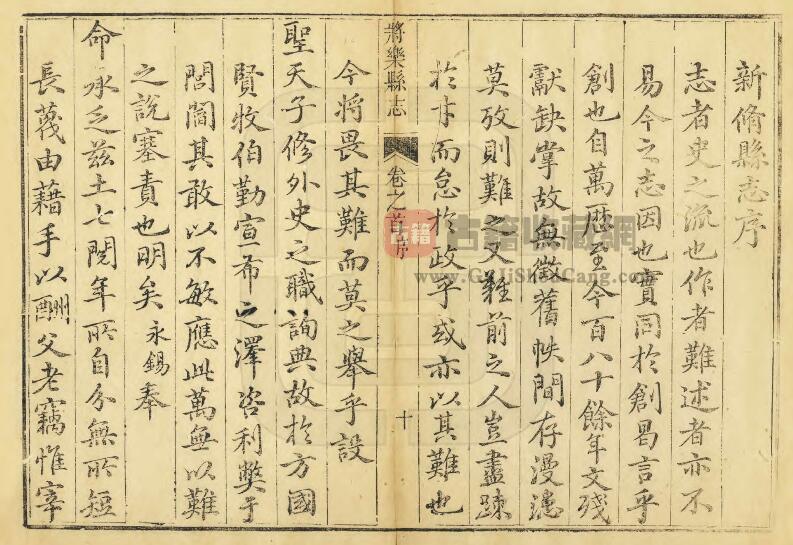 新脩縣志序
志者史之流也作者難述者亦不
易今之志因也實同於創曷言乎
創也自萬歷至今百八十餘年文殘
獻缺掌故無徵舊帙間存漫漶
莫攷則難之又難前之人豈盡踈
於才而怠於政乎或亦以其難也
將樂縣志
卷之首序
十
今將畏其難而莫之舉乎設
聖天子修外史之職詢典故於方國
賢牧伯勤宣布之澤咨利獘于
閭閻其敢以不敏應此萬無以難
之說塞責也明矣永錫奉
命承乏茲土七閱年所自分無所短
長蔑由藉手以酬父老竊惟宰
古籍
古籍收藏網
www.GuJiShouCang.com